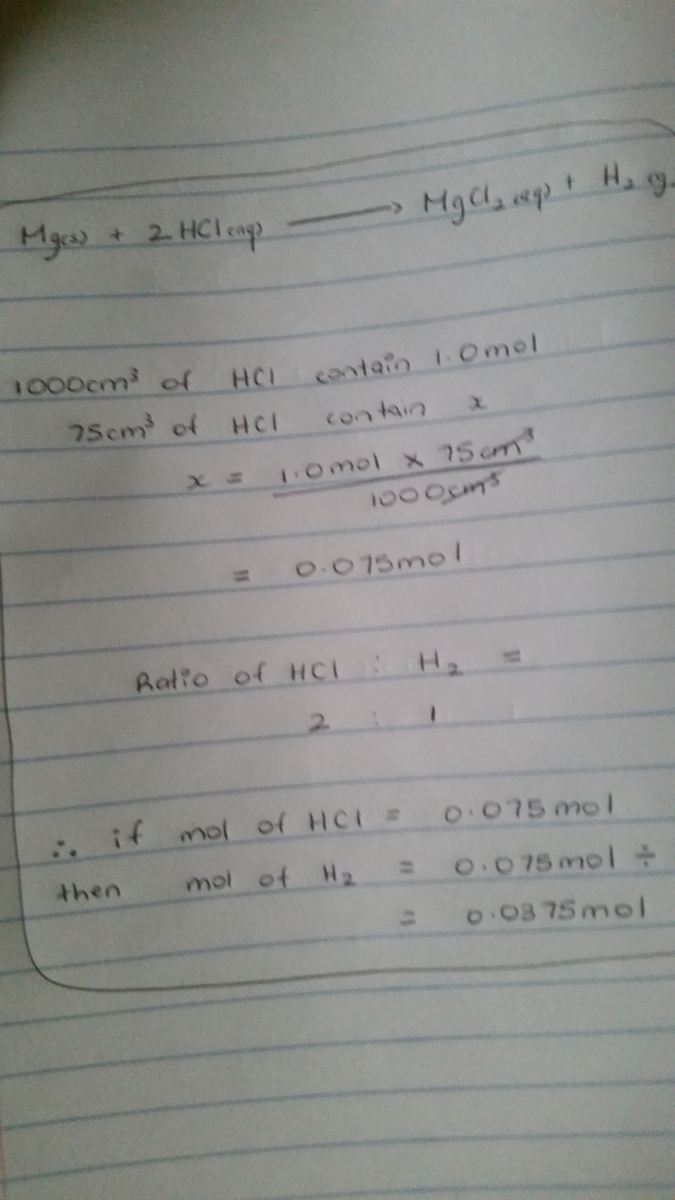 Mg(s) + 2 HCl(aq) ⟶ MgCl₂(aq) + H₂(g
1000cm³ of HCl contain 1.0mol
75cm³ of HCl contain x
x = 1.0mol × 75cm³
1000cm³
= 0.075mol
Ratio of HCl : H₂ =
2 : 1
∴ if mol of HCl = 0.075mol
then mol of H₂ = 0.075mol ÷
= 0.0375mol